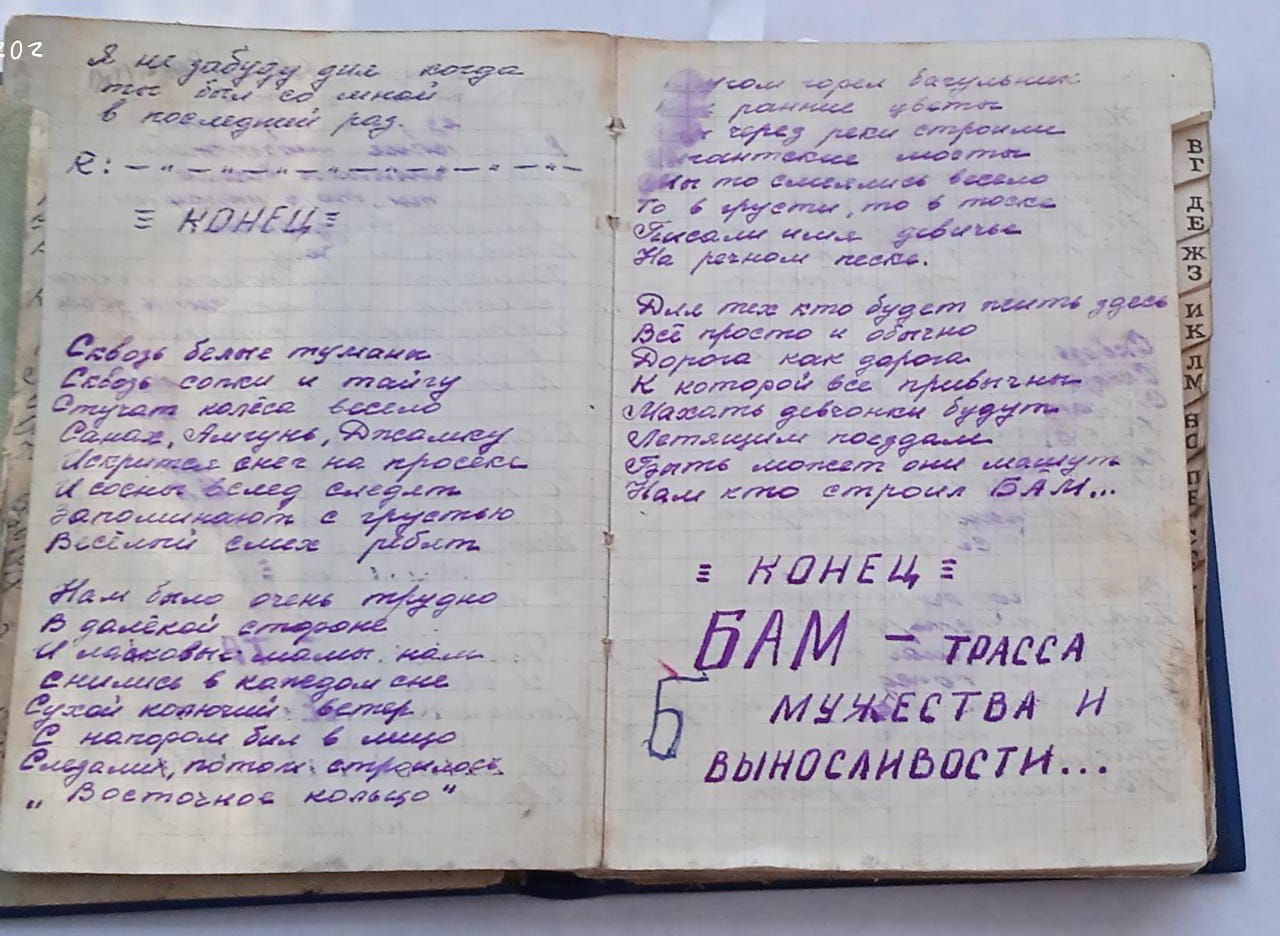 202
Я не забуду дня когда
ты был со мной
в последний раз.
R: — " — " — " — " — " — " — " — " —
≡ КОНЕЦ ≡
Сквозь белые туманы
Сквозь сопки и тайгу
Стучат колёса весело
Самах, Амгунь, Джамку
Искрится снег на просеке
И сосны вслед следят
Запоминают с грустью
Весёлый смех ребят
Нам было очень трудно
В далёкой стороне
И ласковые мамы нам
снились в каждом сне
Сухой колючий ветер
С напором бил в лицо
Следами, потом строилось
„ Восточное кольцо "
угом горел багульник
ранние цветы
через реки строили
гантские мосты
Мы то смеялись весело
То в грусти, то в тоске
Писали имя девичье
На речном песке.
Для тех кто будет жить здесь
Всё просто и обычно
Дорога как дорога
К которой все привычны
Махать девчонки будут
Летящим поездам
Быть может они машут
Нам кто строил БАМ...
≡ КОНЕЦ ≡
БАМ — ТРАССА
МУЖЕСТВА И
ВЫНОСЛИВОСТИ...
Б
ВГ
ДЕ
ЖЗ
ИК
ЛМ